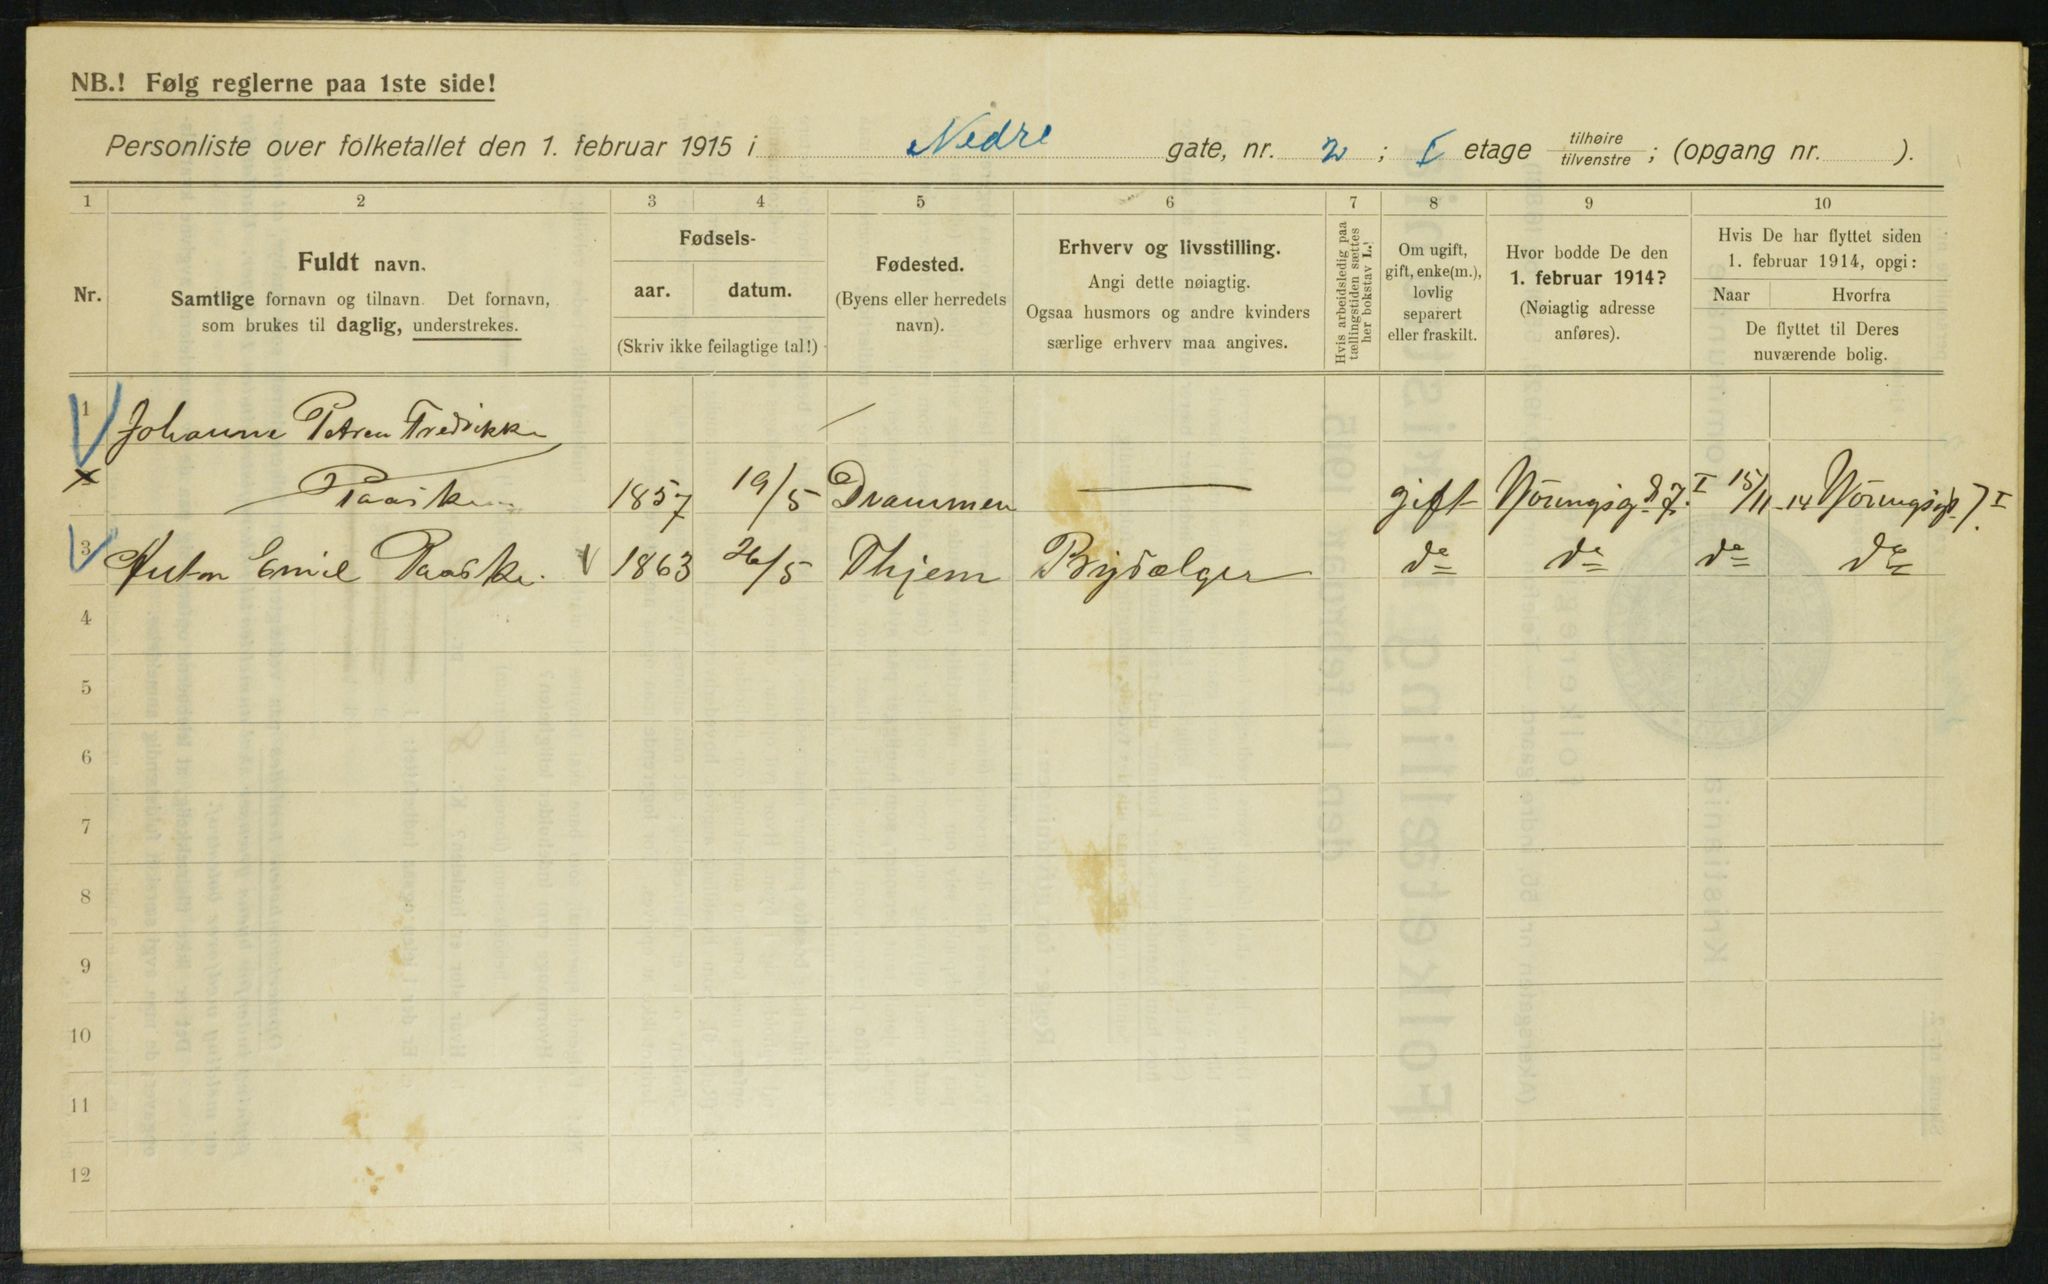 NB.! Følg reglerne paa 1ste side!
Personliste over folketallet den 1. februar 1915 i Nedre gate, nr. 2 ; I etage tilhøire / tilvenstre ; (opgang nr. ).
1 2 3 4 5 6 7 8 9 10
Nr.
Fuldt navn.
Samtlige fornavn og tilnavn. Det fornavn,
som brukes til daglig, understrekes.
Fødsels-
aar. datum.
(Skriv ikke feilagtige tal!)
Fødested.
(Byens eller herredets
navn).
Erhverv og livsstilling.
Angi dette nøiagtig.
Ogsaa husmors og andre kvinders
særlige erhverv maa angives.
Hvis arbeidsledig paa
tællingstiden sættes
her bokstav L.!
Om ugift,
gift, enke(m.),
lovlig
separert
eller fraskilt.
Hvor bodde De den
1. februar 1914?
(Nøiagtig adresse
anføres).
Hvis De har flyttet siden
1. februar 1914, opgi:
Naar Hvorfra
De flyttet til Deres
nuværende bolig.
1 Johanne Petrea Fredrikke
Paaske 1857 19/5 Drammen — gift 7. I 15/11 -14 7. I
3 Anton Emil Paaske. 1863 26/5 Thjem do do do do
4
5
6
7
8
9
10
11
12